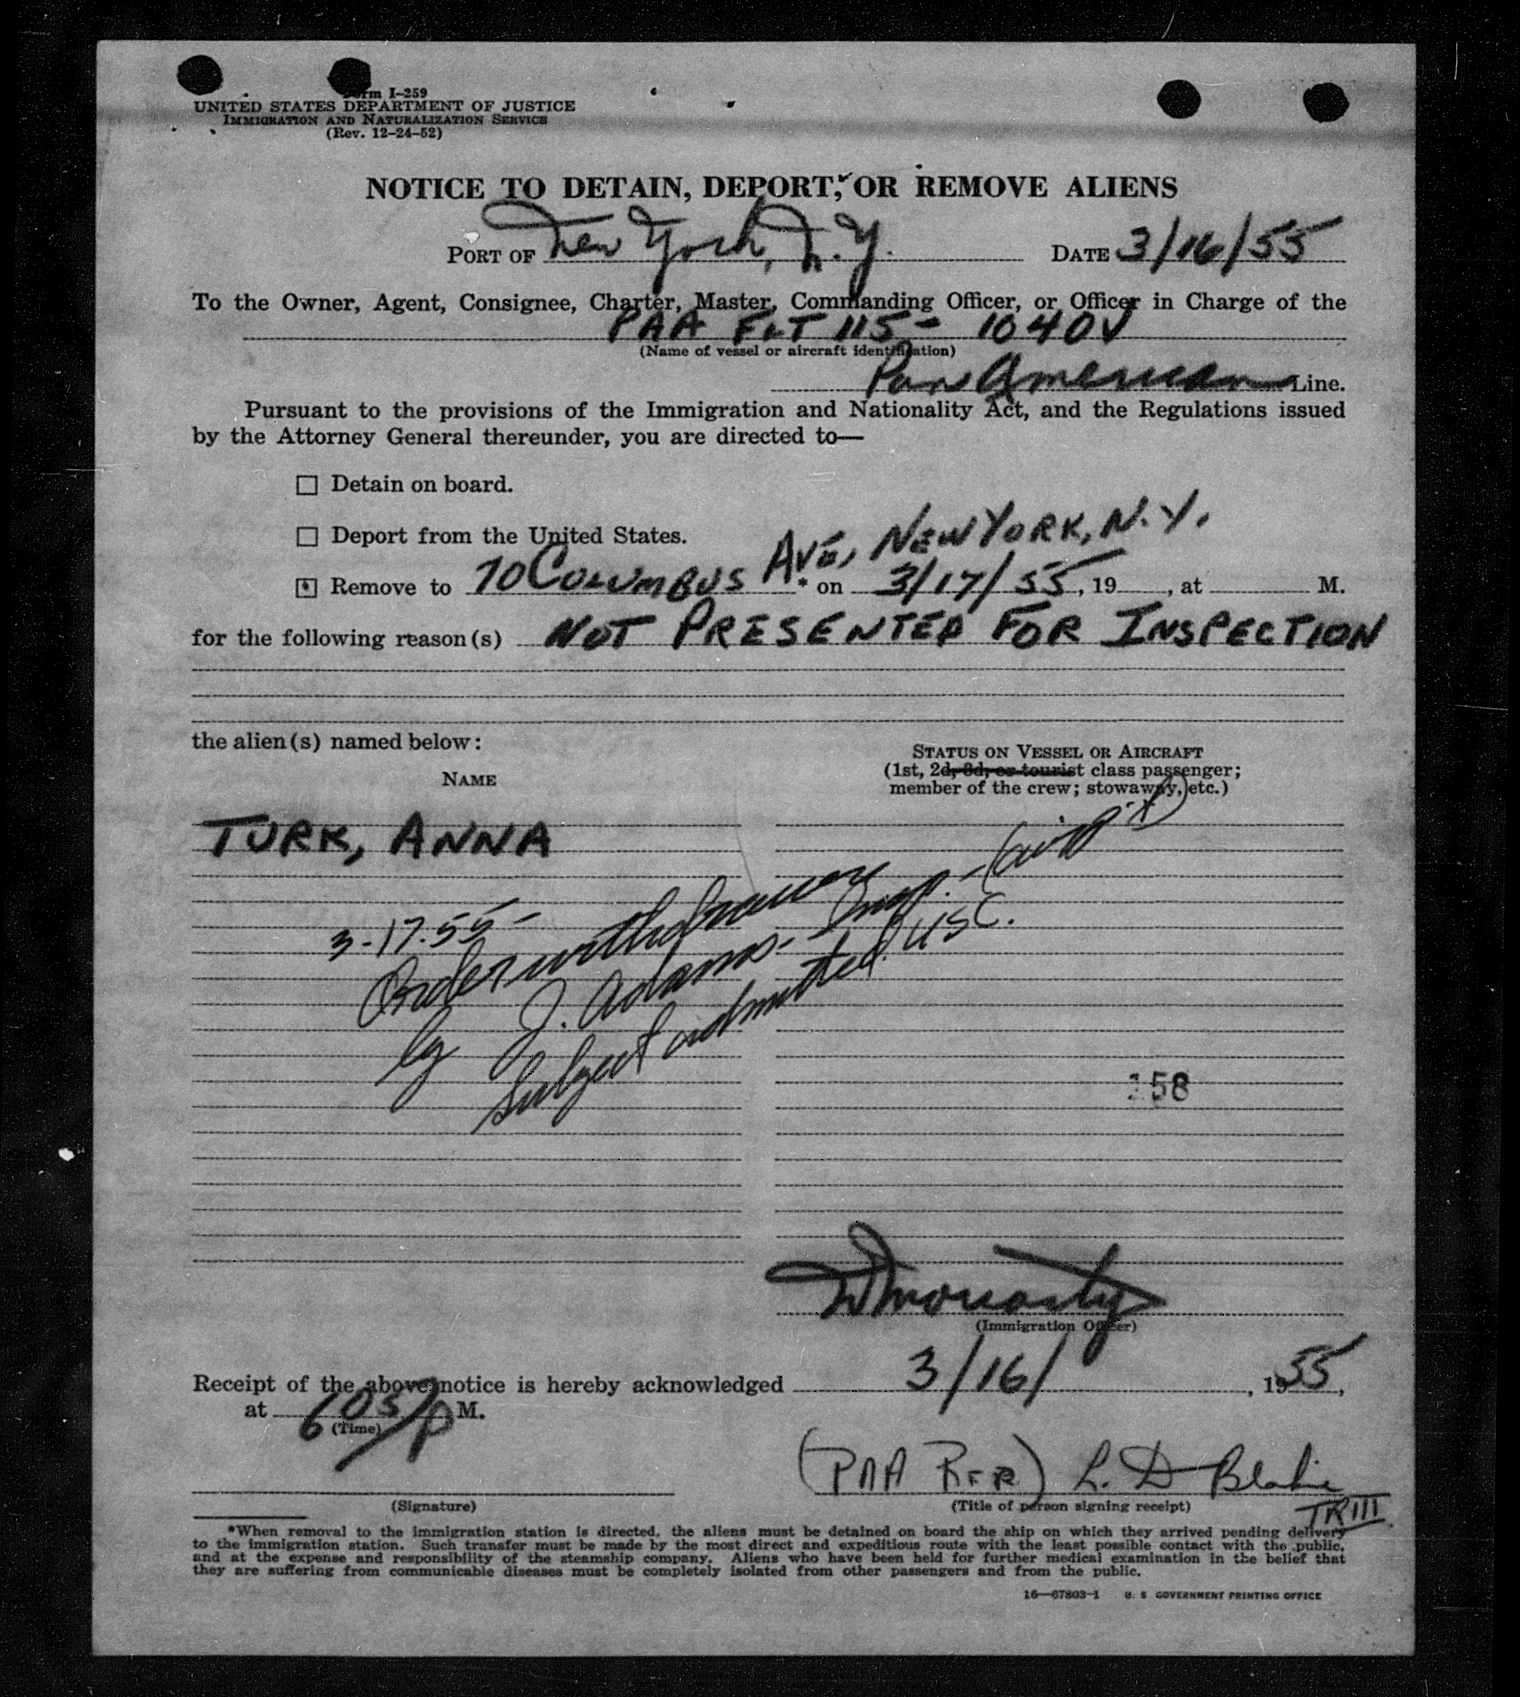 Form I-259
UNITED STATES DEPARTMENT OF JUSTICE
IMMIGRATION AND NATURALIZATION SERVICE
(Rev. 12-24-52)
NOTICE TO DETAIN, DEPORT, OR REMOVE ALIENS
PORT OF New York, N.Y. DATE 3/16/55
To the Owner, Agent, Consignee, Charter, Master, Commanding Officer, or Officer in Charge of the
PAA FLT 115 - 1040V
(Name of vessel or aircraft identification)
Pan American Line.
Pursuant to the provisions of the Immigration and Nationality Act, and the Regulations issued
by the Attorney General thereunder, you are directed to—
☐ Detain on board.
☐ Deport from the United States.
Remove to 70 COLUMBUS AVE, NEW YORK, N.Y. * on 3/17/55, 19 , at M.
for the following reason(s) NOT PRESENTED FOR INSPECTION
the alien(s) named below:
NAME
STATUS ON VESSEL OR AIRCRAFT
(1st, 2d, 3d, or tourist class passenger;
member of the crew; stowaway, etc.)
TURK, ANNA
3-17-55-
Order withdrawn
by J. Adams - Insp. -
Subject admitted USC.
158
(Immigration Officer)
Receipt of the above notice is hereby acknowledged 3/16/, 1955,
at 605 p M.
(Time)
(PAA REP) L. D. Blakie
(Signature)
(Title of person signing receipt)
TR III
*When removal to the immigration station is directed, the aliens must be detained on board the ship on which they arrived pending delivery
to the immigration station. Such transfer must be made by the most direct and expeditious route with the least possible contact with the public,
and at the expense and responsibility of the steamship company. Aliens who have been held for further medical examination in the belief that
they are suffering from communicable diseases must be completely isolated from other passengers and from the public.
16—67803-1 U. S. GOVERNMENT PRINTING OFFICE